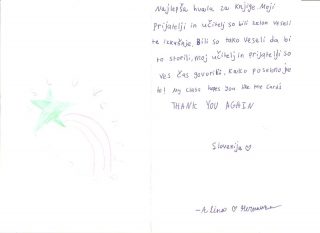 Najlepša hvala za knjige Moji
prijatelji in učitelj so bili zelon veseli
te
Bili so tako veseli da, bi
ta storili, moj učitelj in prijatelji so
ves čas govorili, kako posebno je
to! My class hopes you like the cards
THANK YOU AGAIN
Slovenija